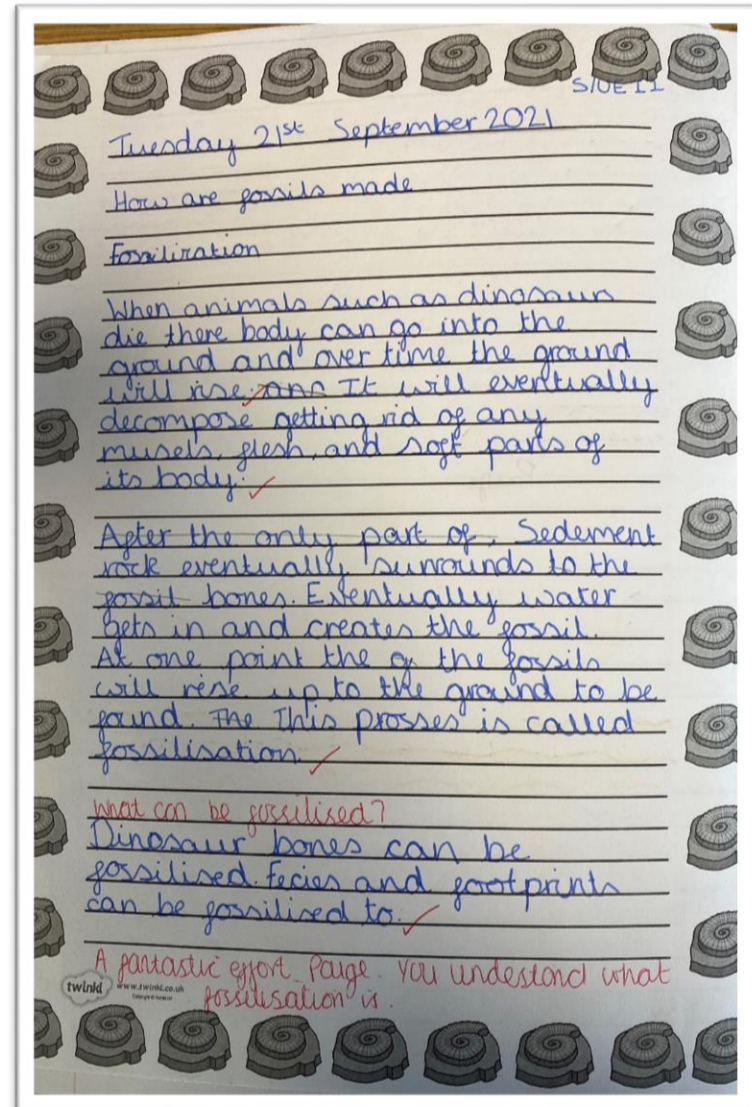 S/UE II
Tuesday 21st September 2021
How are fossils made
Fossilisation
When animals such as dinosaurs
die there body can go into the
ground and over time the ground
will rise. and It will eventually
decompose getting rid of any
musels, flesh, and soft parts of
its body.
After the only part of. Sedement
rock eventually surrounds to the
fossil bones. Eventually water
gets in and creates the fossil.
At one point the of the fossils
will rise up to the ground to be
found. The This prosses is called
fossilisation.
What can be fossilised?
Dinosaur bones can be
fossilised. fecies and footprints
can be fossilised to.
A fantastic effort Paige. You understand what
fossilisation is.
twinkl www.twinkl.co.uk